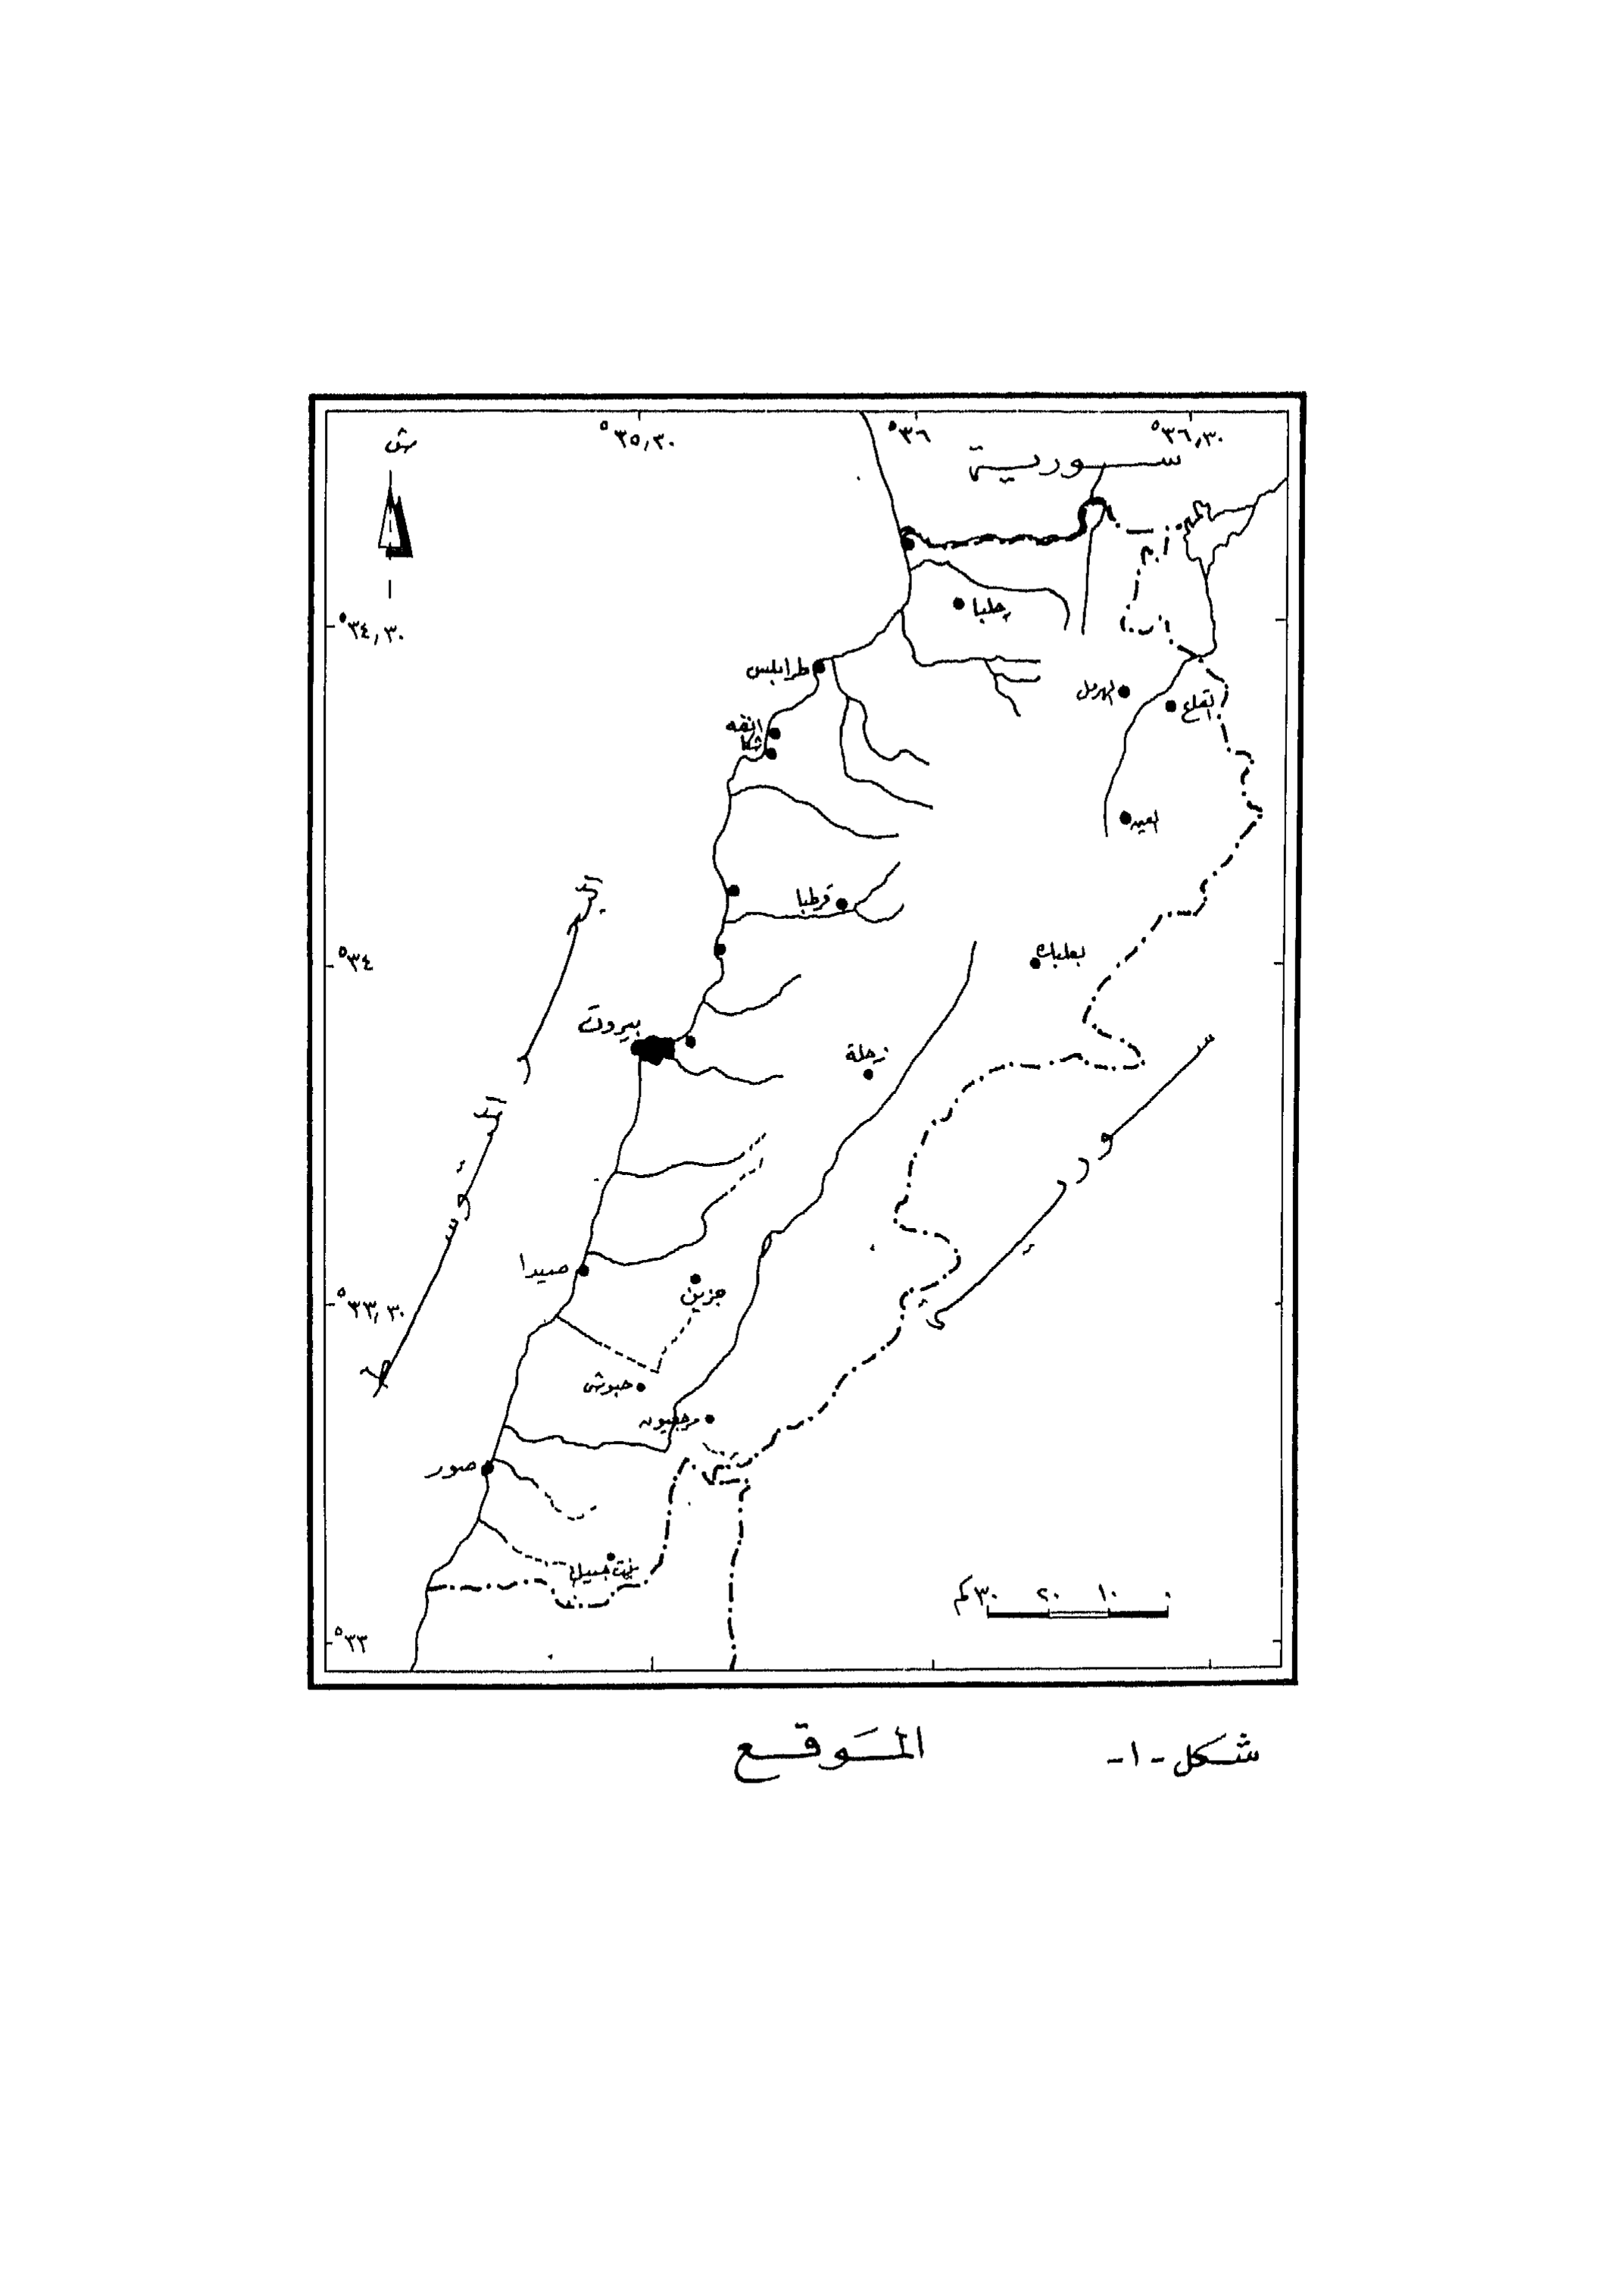 ش
°٣٥,٣٠
°٣٦
°٣٦,٣٠
سورية
°٣٤,٣٠
حلبا
طرابلس
الهرمل
القاع
انفه
شكا
قرطبا
°٣٤
بعلبك
بيروت
زحلة
البحر المتوسط
سورية
صيدا
جزين
°٣٣,٣٠
حبوش
مرجعيون
صور
بنت جبيل
٣٠ كم ٢٠ ١٠ ٠
°٣٣
شكل -١- المَوقع